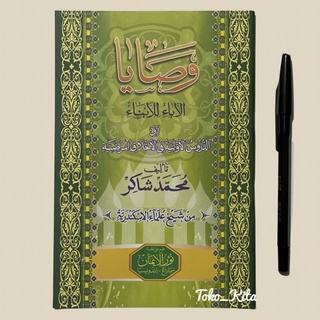 وصايا
الآباء للأبناء
أو
الدروس الأولية في الأخلاق المرضية
تأليف
محمد شاكر
من شيخ علماء الإسكندرية
نور الإيمان
Toko_Kita